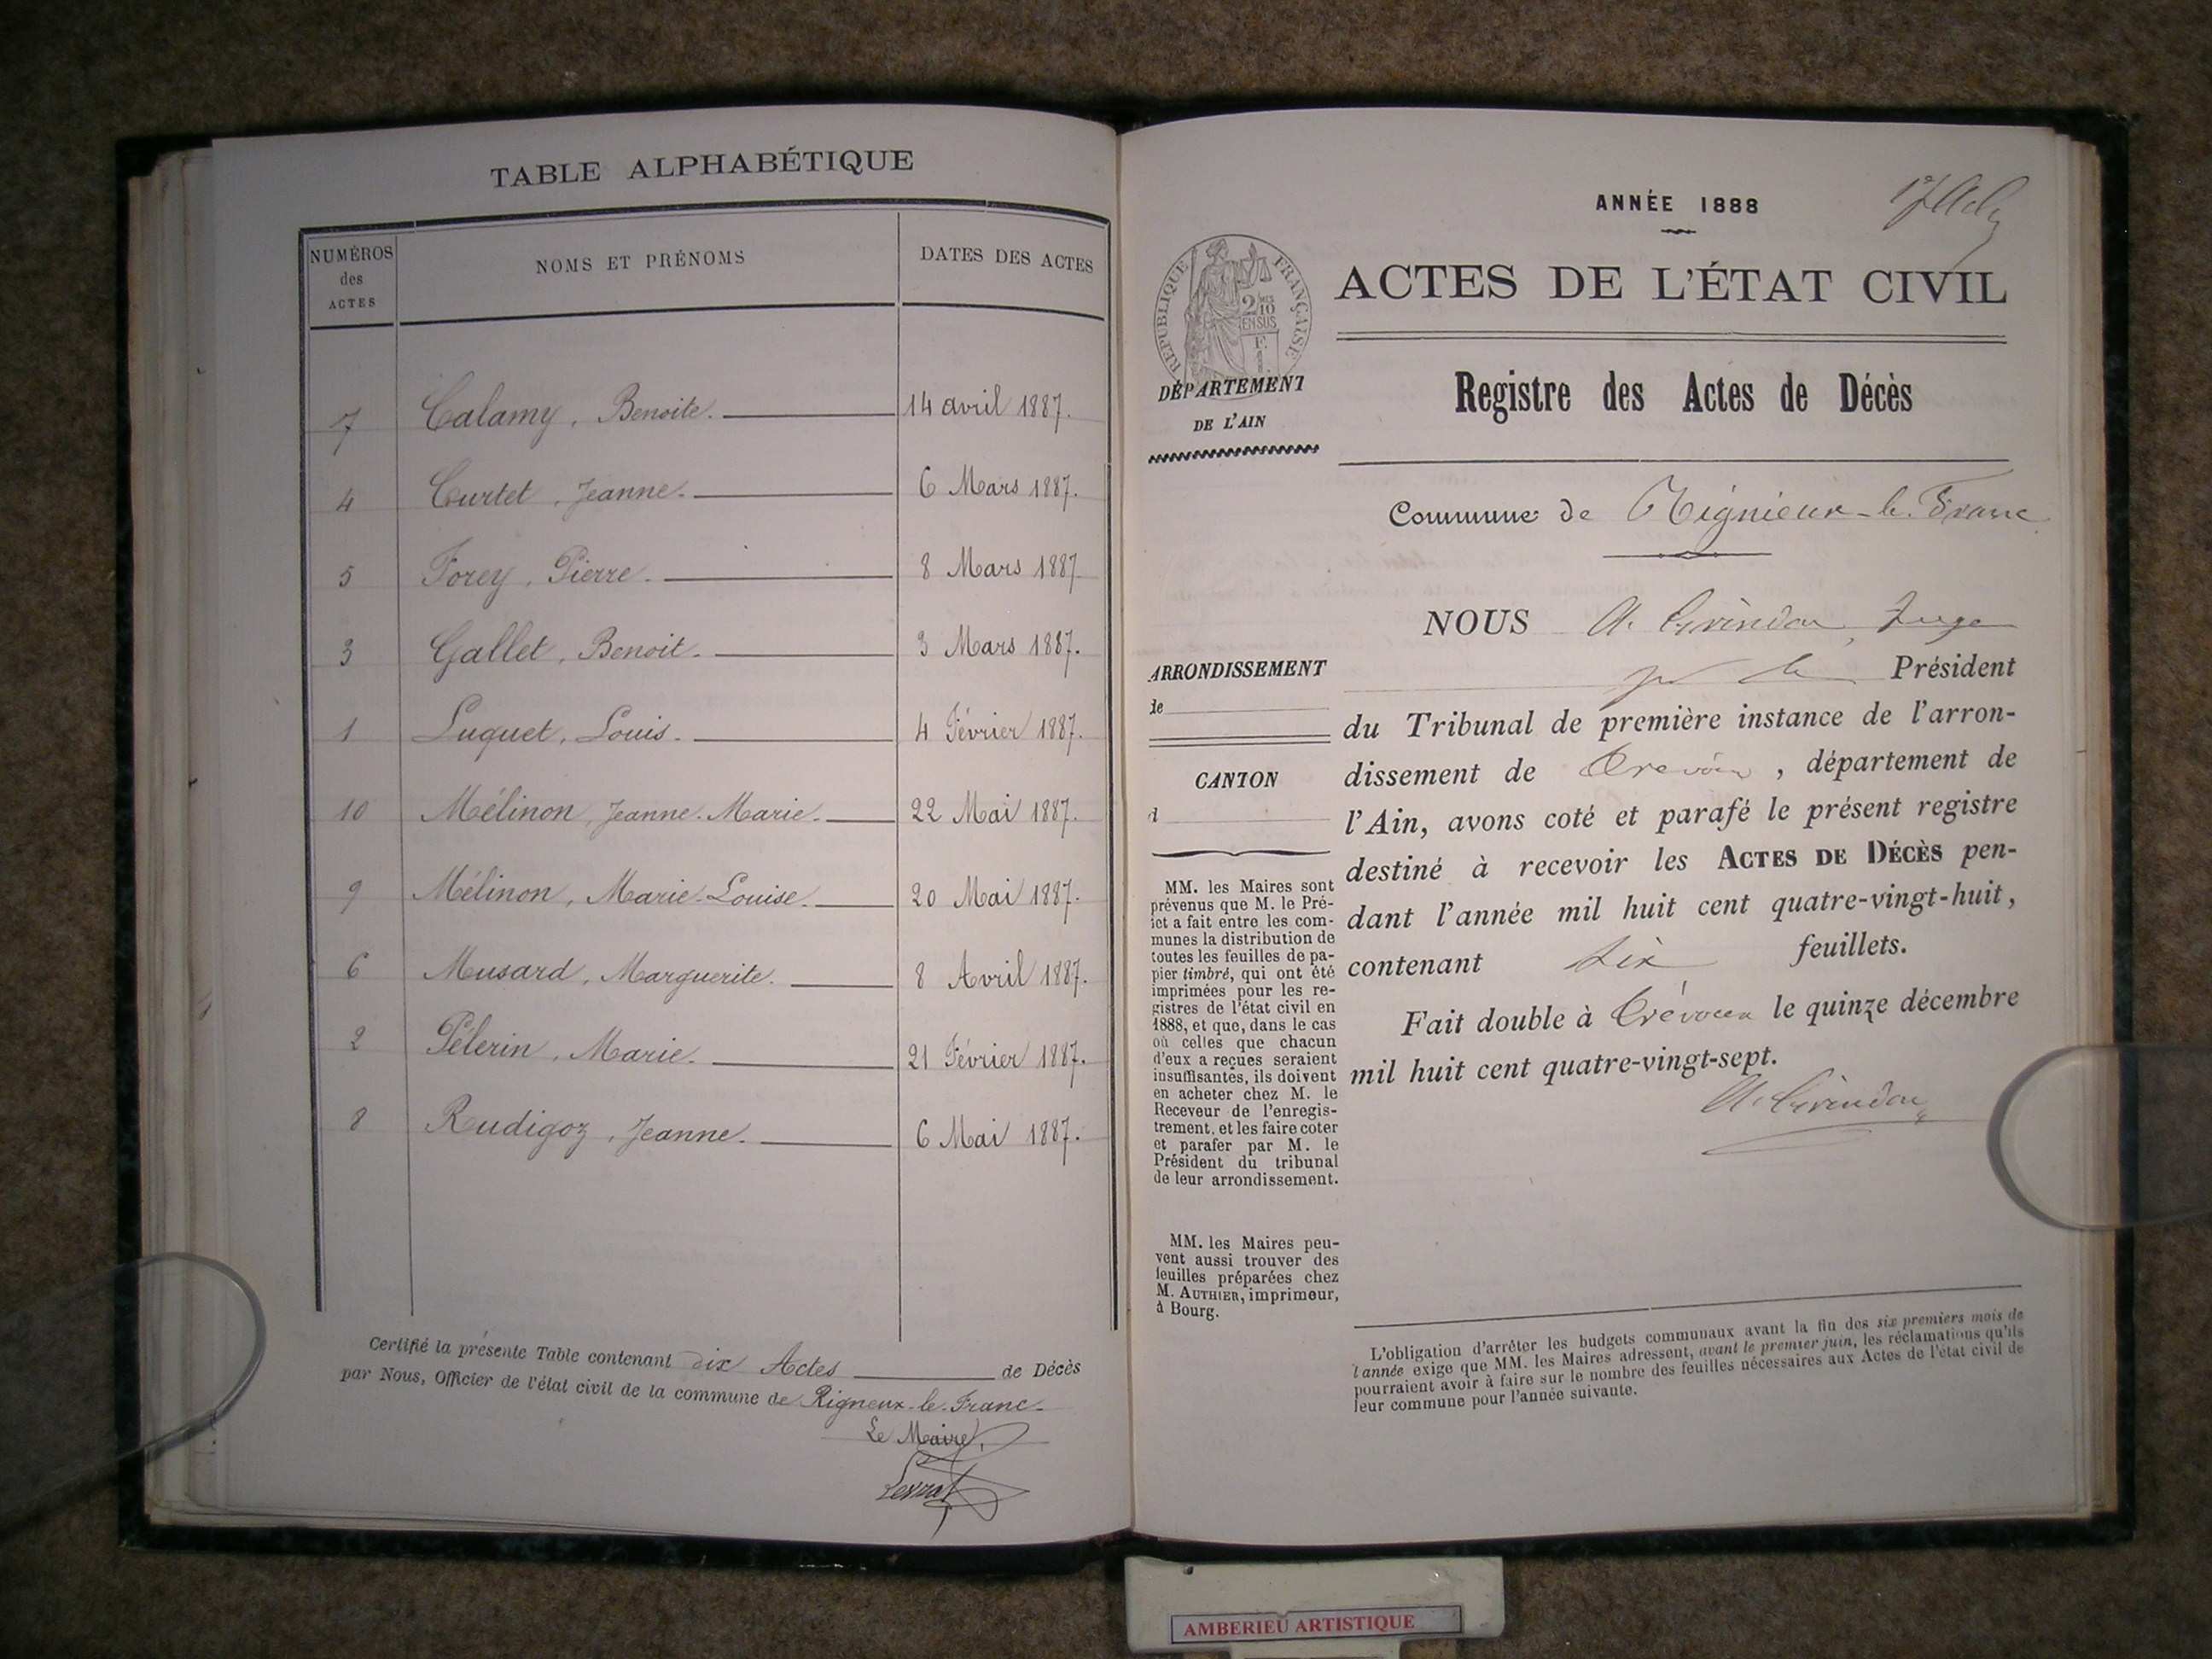 TABLE ALPHABÉTIQUE
NUMÉROS
des
ACTES
NOMS ET PRÉNOMS
DATES DES ACTES
7 Calamy, Benoite. 14 avril 1887.
4 Curtet, Jeanne. 6 Mars 1887.
5 Forey, Pierre. 8 Mars 1887
3 Gallet, Benoit. 3 Mars 1887.
1 Luquet, Louis. 4 Février 1887.
10 Mélinon, Jeanne-Marie. 22 Mai 1887.
9 Mélinon, Marie-Louise. 20 Mai 1887.
6 Musard, Marguerite. 8 Avril 1887.
2 Pélerin, Marie. 21 Février 1887.
8 Rudigoz, Jeanne. 6 Mai 1887.
Certifié la présente Table contenant dix Actes de Décès
par Nous, Officier de l'état civil de la commune de Rigneux-le-Franc-
Le Maire,
ANNÉE 1888
ACTES DE L'ÉTAT CIVIL
RÉPUBLIQUE FRANÇAISE
2/10
EN SUS
DÉPARTEMENT
DE L'AIN
Registre des Actes de Décès
Commune de Rignieux-le-Franc
NOUS Juge
Président
du Tribunal de première instance de l'arron-
dissement de Trévoux, département de
l'Ain, avons coté et parafé le présent registre
destiné à recevoir les ACTES DE DÉCÈS pen-
dant l'année mil huit cent quatre-vingt-huit,
contenant six feuillets.
Fait double à Trévoux le quinze décembre
mil huit cent quatre-vingt-sept.
ARRONDISSEMENT
de
CANTON
d
MM. les Maires sont
prévenus que M. le Pré-
fet a fait entre les com-
munes la distribution de
toutes les feuilles de pa-
pier timbré, qui ont été
imprimées pour les re-
gistres de l'état civil en
1888, et que, dans le cas
où celles que chacun
d'eux a reçues seraient
insuffisantes, ils doivent
en acheter chez M. le
Receveur de l'enregis-
trement, et les faire coter
et parafer par M. le
Président du tribunal
de leur arrondissement.
MM. les Maires peu-
vent aussi trouver des
feuilles préparées chez
M. AUTHIER, imprimeur,
à Bourg.
L'obligation d'arrêter les budgets communaux avant la fin des six premiers mois de
l'année exige que MM. les Maires adressent, avant le premier juin, les réclamations qu'ils
pourraient avoir à faire sur le nombre des feuilles nécessaires aux Actes de l'état civil de
leur commune pour l'année suivante.
AMBERIEU ARTISTIQUE